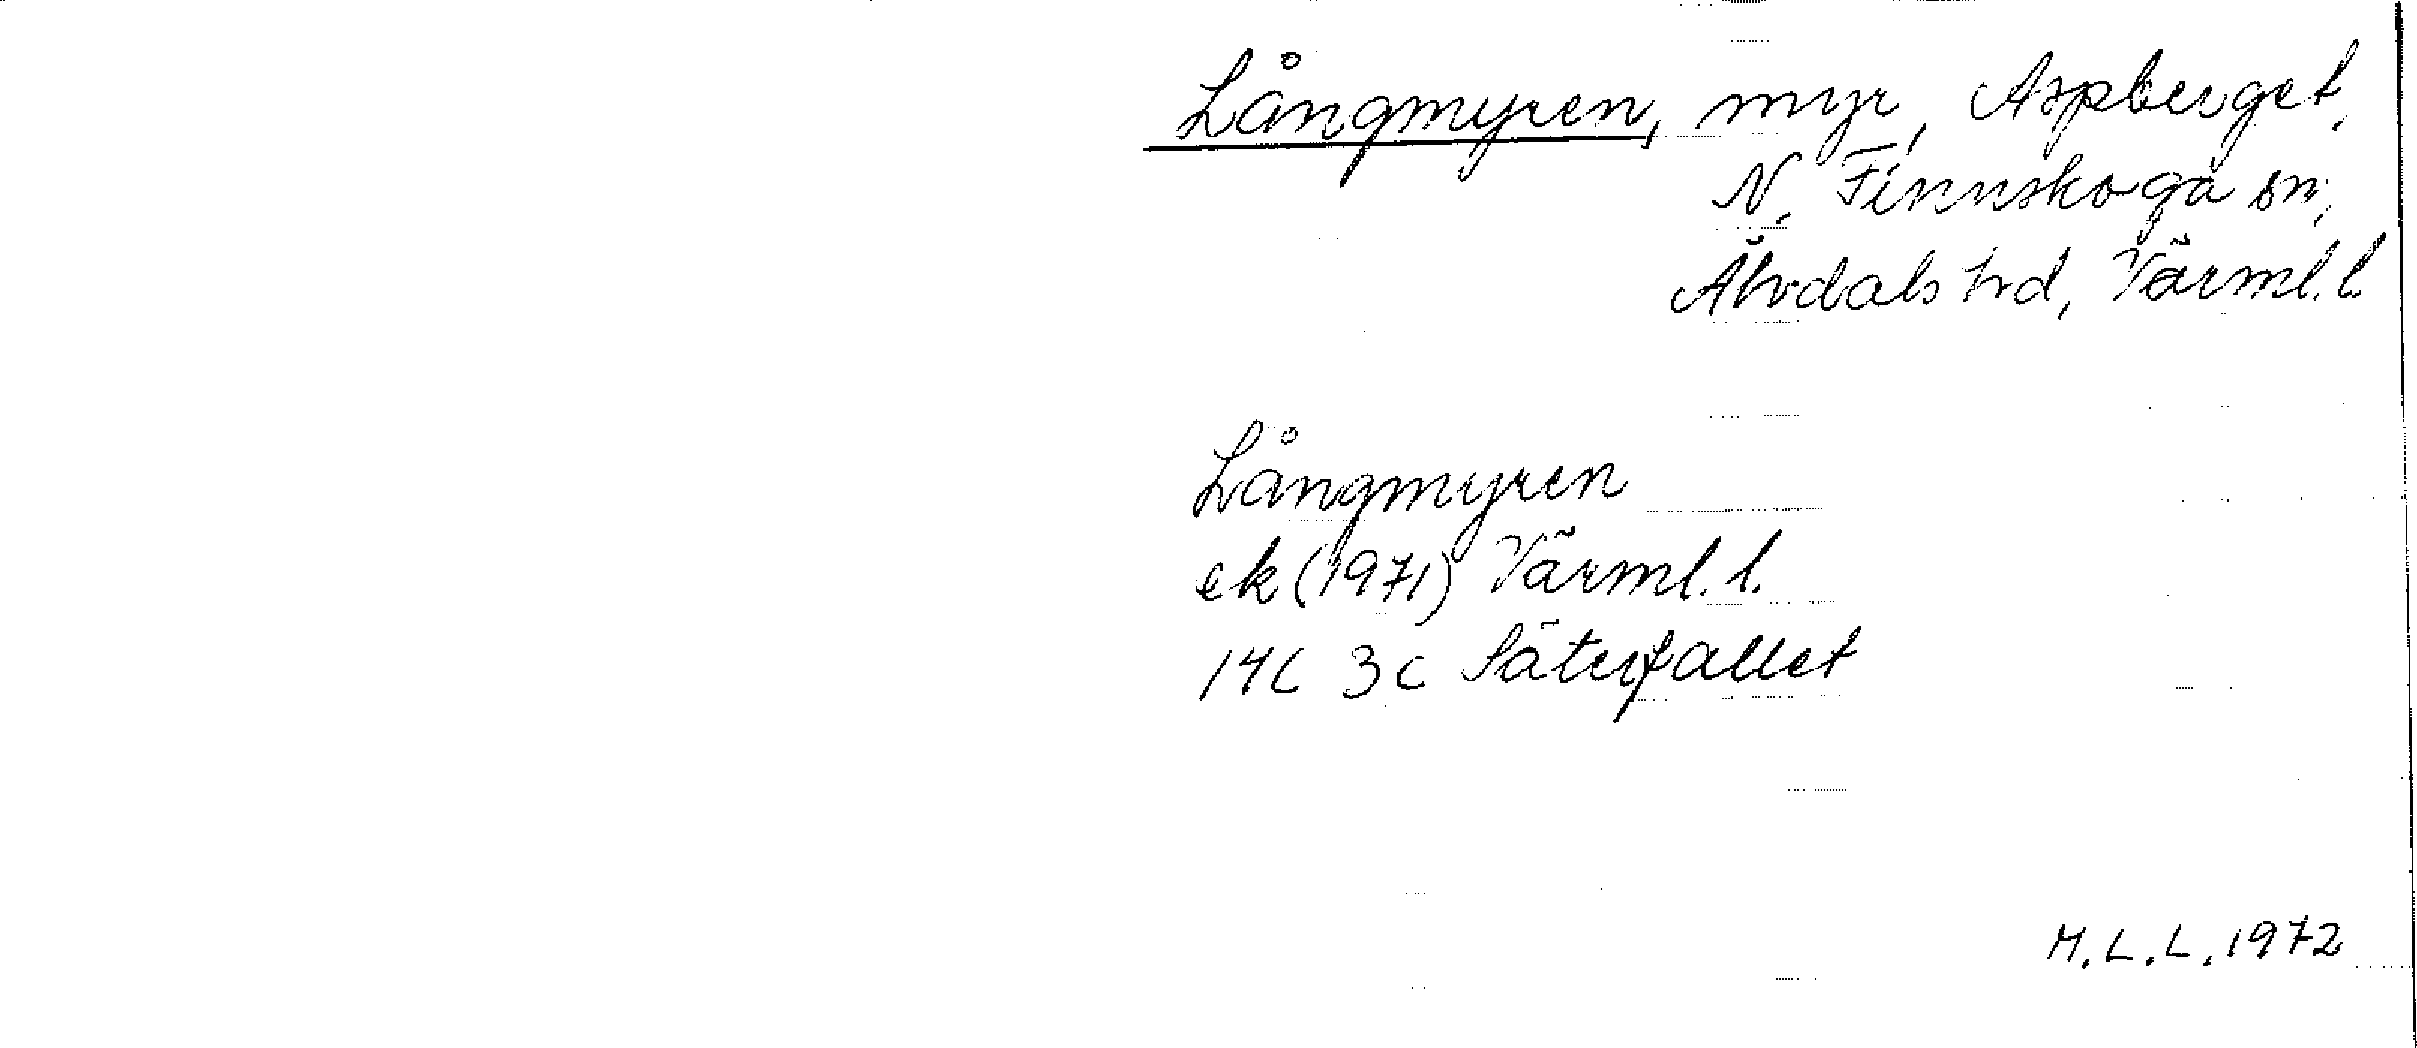 Långmyren, myr, Aspberget,
N. Finnskoga sn,
Älvdals hd, Värml. l.
Långmyren
ek (1971) Värml. l.
14C 3c Säterfallet
M.L.L. 1972